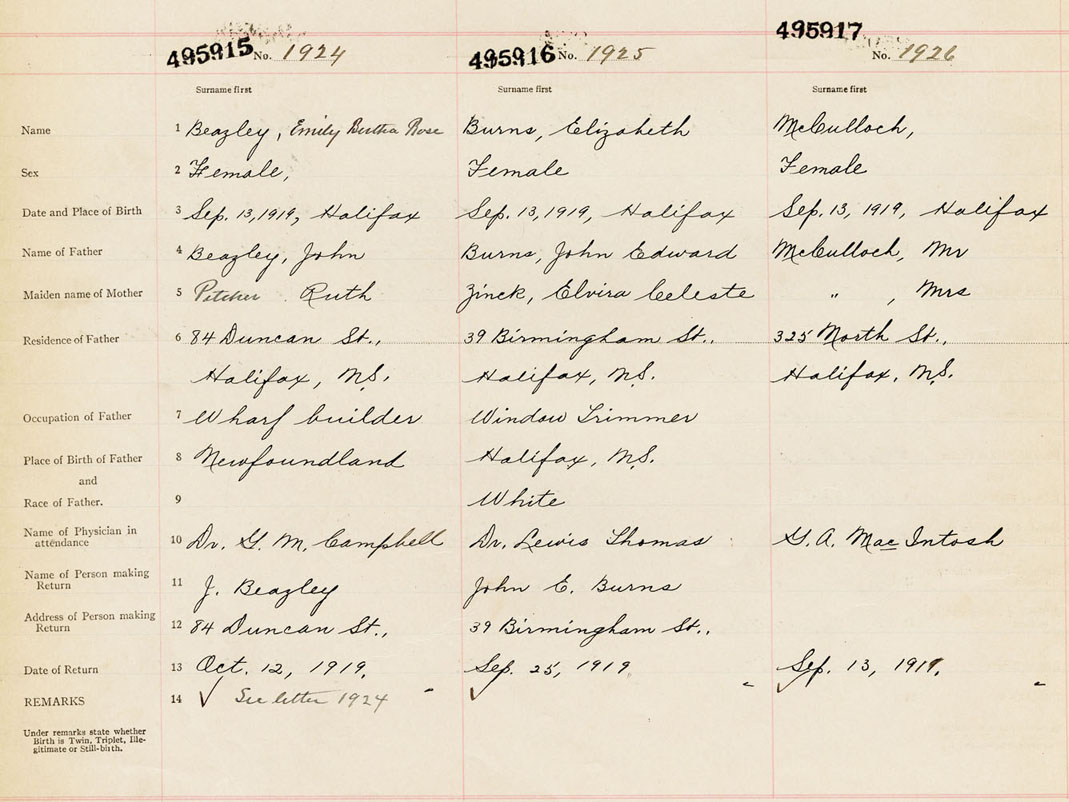 495915 No. 1924 495916 No. 1925 495917 No. 1926
Surname first Surname first Surname first
Name 1 Beazley, Emily Bertha Rose Burns, Elizabeth McCulloch,
Sex 2 Female, Female Female
Date and Place of Birth 3 Sep. 13, 1919, Halifax Sep. 13, 1919, Halifax Sep. 13, 1919, Halifax
Name of Father 4 Beazley, John Burns, John Edward McCulloch, Mr
Maiden name of Mother 5 Pitcher Ruth Zinck, Elvira Celeste " , Mrs
Residence of Father 6 84 Duncan St., 39 Birmingham St., 325 North St.,
Halifax, N.S. Halifax, N.S. Halifax, N.S.
Occupation of Father 7 Wharf builder Window Trimmer
Place of Birth of Father 8 Newfoundland Halifax, N.S.
and
Race of Father. 9 White
Name of Physician in
attendance 10 Dr. G. M. Campbell Dr. Lewis Thomas G. A. MacIntosh
Name of Person making
Return 11 J. Beazley John E. Burns
Address of Person making
Return 12 84 Duncan St., 39 Birmingham St.,
Date of Return 13 Oct. 12, 1919. Sep. 25, 1919. Sep. 13, 1919.
REMARKS 14 ✓ See letter 1924 ✓ ✓
Under remarks state whether
Birth is Twin, Triplet, Ille-
gitimate or Still-birth.